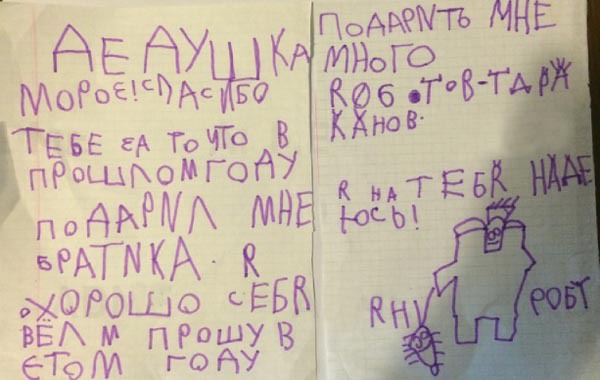 ДЕДУШКА
МОРОЗ! СПАСИБО
ТЕБЕ ЗА ТО ЧТО В
ПРОШЛОМ ГОДУ
ПОДАРИЛ МНЕ
БРАТИКА. Я
ХОРОШО СЕБЯ
ВЁЛ И ПРОШУ В
ЭТОМ ГОДУ
ПОДАРИТЬ МНЕ
МНОГО
РОБОТОВ-ТАРА
КАНОВ.
Я НА ТЕБЯ НАДЕ
ЮСЬ!
РОБТ